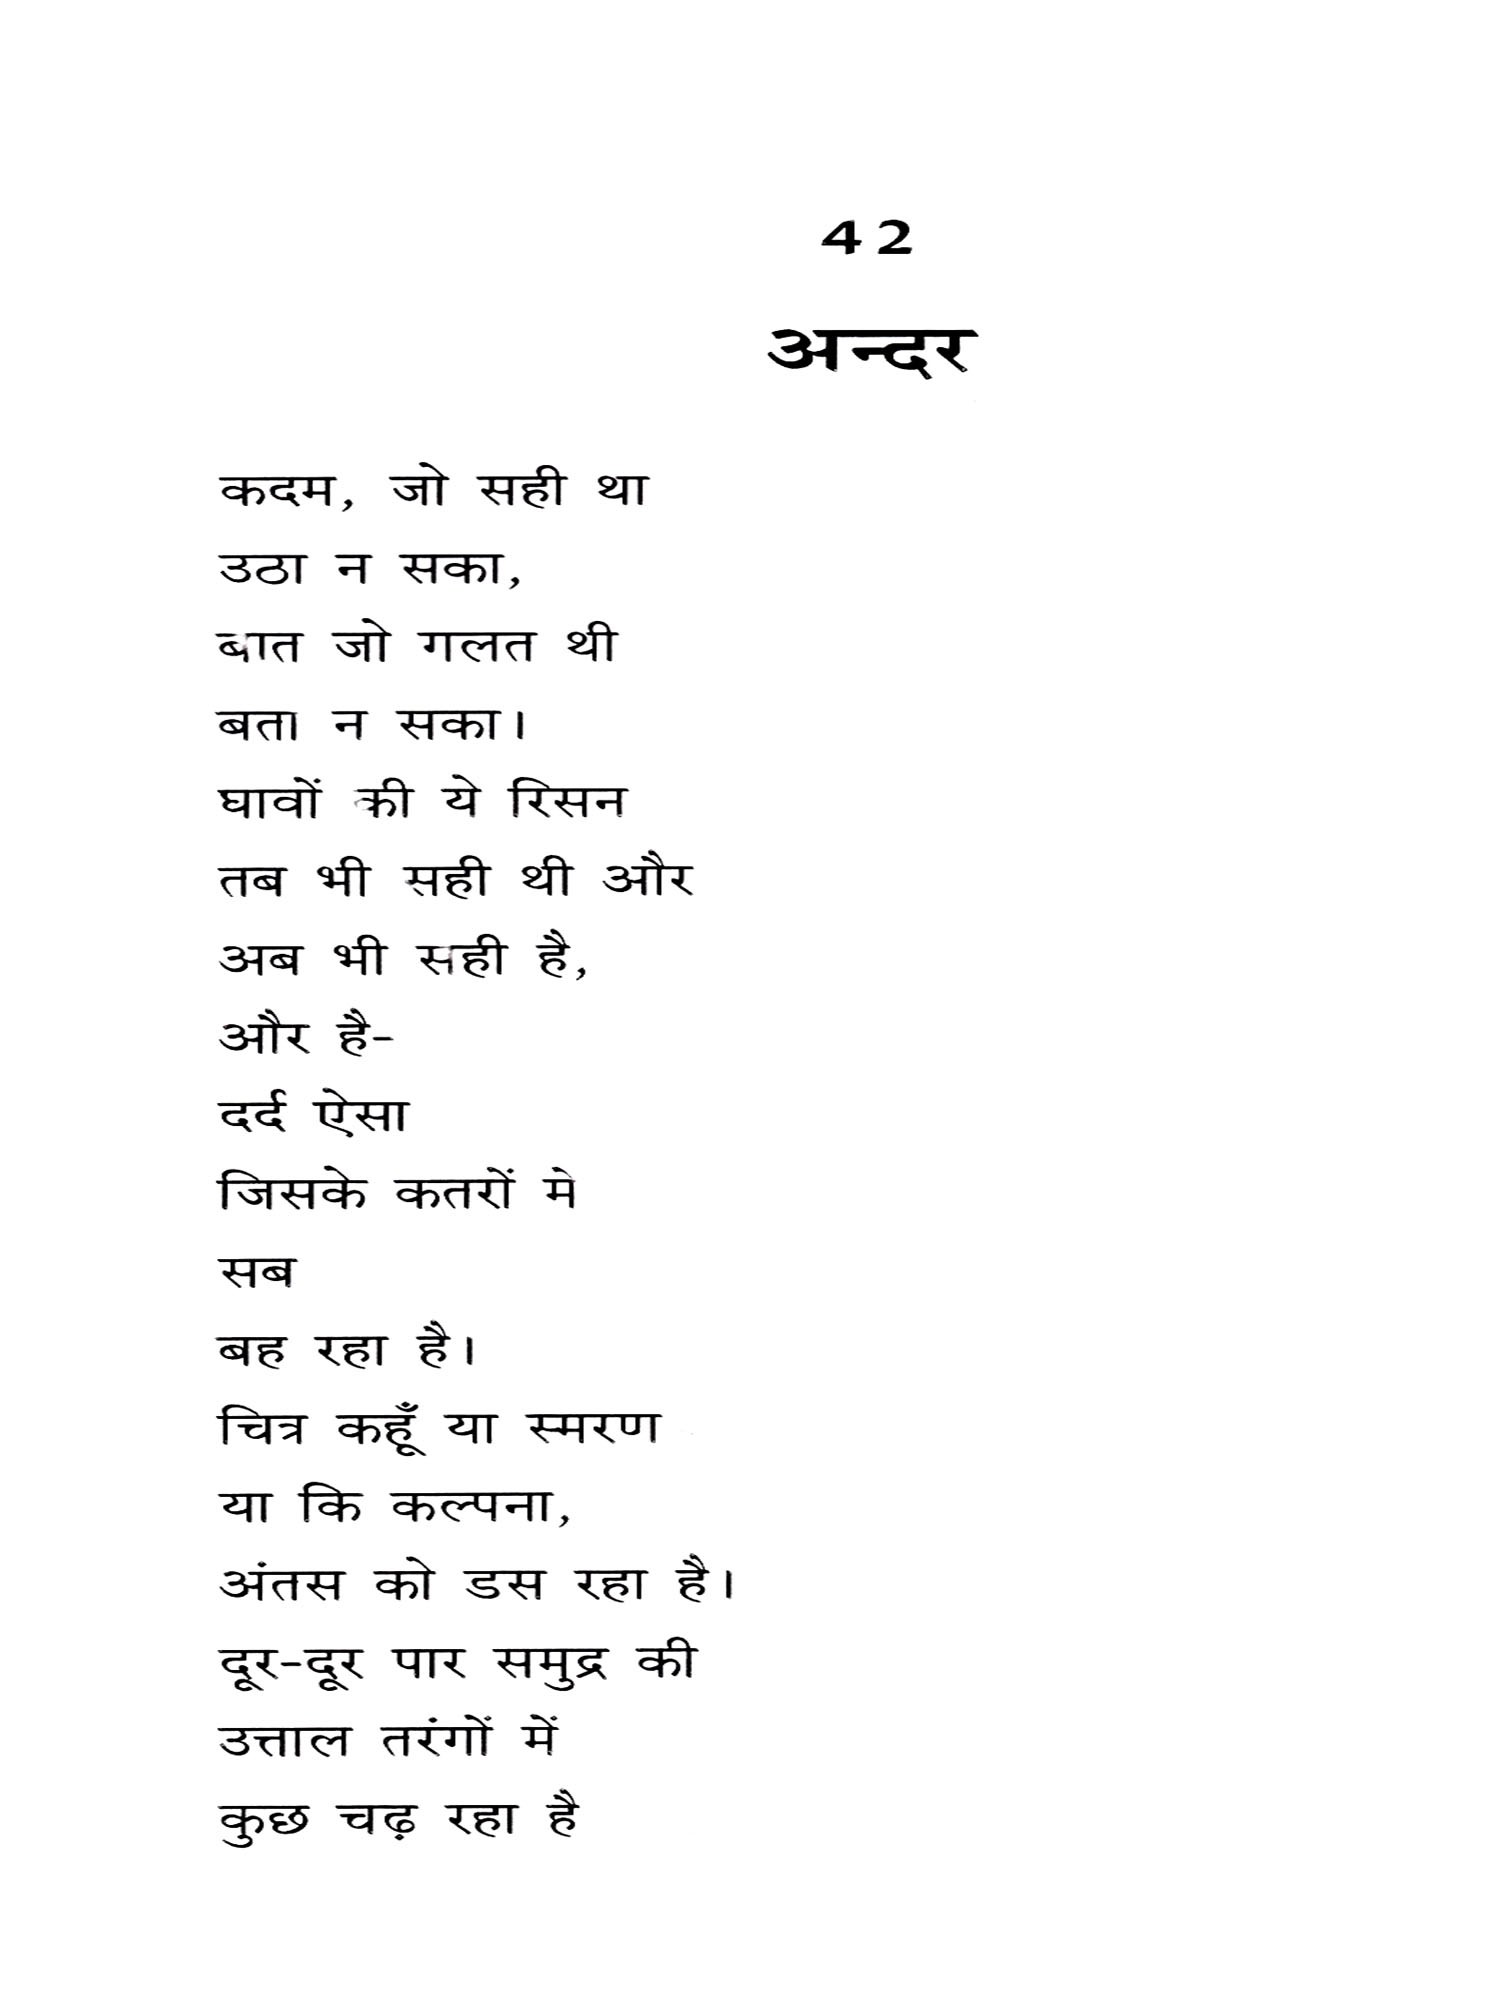 42
अन्दर
कदम, जो सही था
उठा न सका,
बात जो गलत थी
बता न सका।
घावों की ये रिसन
तब भी सही थी और
अब भी सही है,
और है-
दर्द ऐसा
जिसके कतरों मे
सब
बह रहा है।
चित्र कहूँ या स्मरण
या कि कल्पना,
अंतस को डस रहा है।
दूर-दूर पार समुद्र की
उत्ताल तरंगों में
कुछ चढ़ रहा है